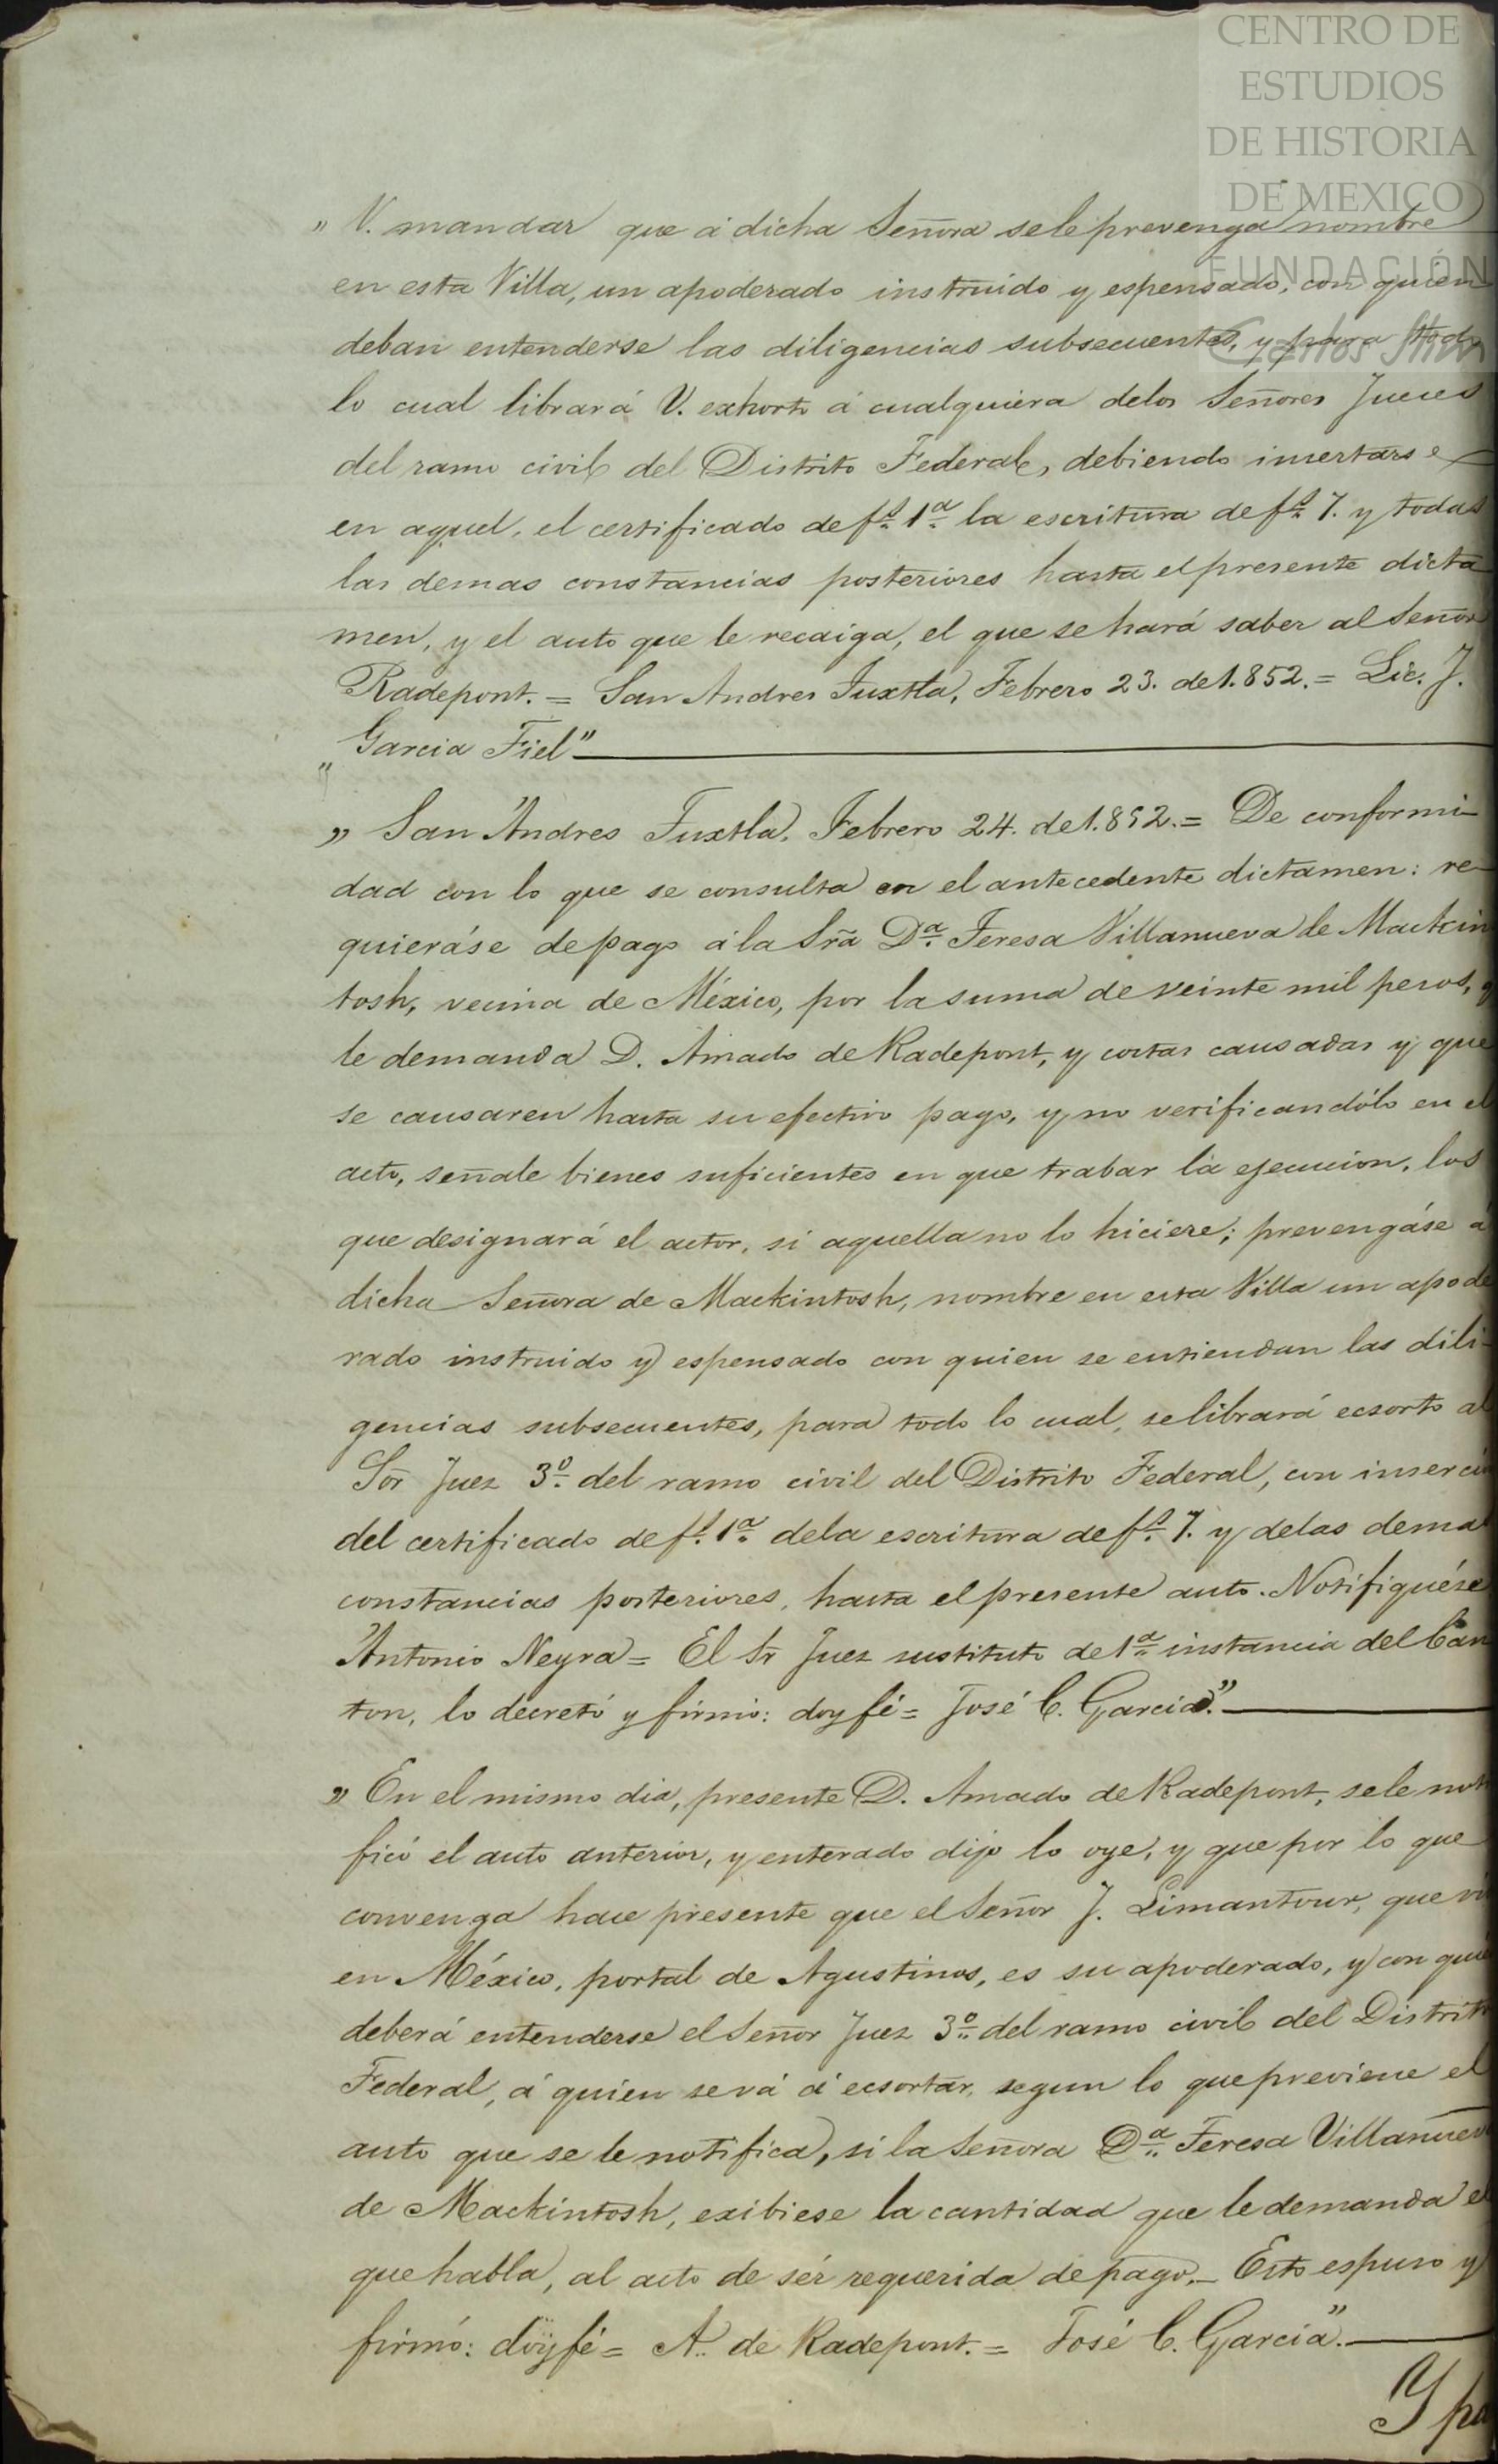 CENTRO DE
ESTUDIOS
DE HISTORIA
DE MEXICO
FUNDACIÓN
Carlos Slim
„ V. mandar que á dicha Señora se le prevenga nombre
en esta Villa, un apoderado instruido y espensado, con quien
deban entenderse las diligencias subsecuentes, y para todo
lo cual librará V. exhorto á cualquiera delos Señores Jueces
del ramo civil del Distrito Federal, debiendo insertarse
en aquel, el certificado de fs. 1ª la escritura de fs. 7. y todas
las demas constancias posteriores hasta el presente dicta
men, y el auto que le recaiga, el que se hará saber al Señor
Radepont. = San Andres Tuxtla, Febrero 23. de 1.852. = Lic. J.
„ Garcia Fiel"
„ San Andres Tuxtla, Febrero 24. de 1.852. = De conformi-
dad con lo que se consulta en el antecedente dictamen: re-
quieráse de pago á la Sra Dª Teresa Villanueva de Mackin
tosh, vecina de México, por la suma de veinte mil pesos, q
le demanda D. Amado de Radepont, y costas causadas y que
se causaren hasta su efectivo pago, y no verificandólo en el
acto, señale bienes suficientes en que trabar la ejecucion, los
que designará el actor, si aquella no lo hiciere; prevengáse á
dicha Señora de Mackintosh, nombre en esta Villa un apode
rado instruido y espensado con quien se entiendan las dili-
gencias subsecuentes, para todo lo cual, se librará ecsorto al
Sor Juez 3º del ramo civil del Distrito Federal, con inserció
del certificado de fs. 1ª dela escritura de fs. 7. y delas demas
constancias posteriores, hasta el presente auto. Notifiquése
Antonio Neyra = El Sr Juez sustituto de 1ª instancia del Can
ton, lo decretó y firmó: doy fé = José C. Garcia."
„ En el mismo dia, presente D. Amado de Radepont, se le noti
ficó el auto anterior, y enterado dijo lo oye, y que por lo que
convenga hace presente que el Señor J. Limantour, que vi
en México, portal de Agustinos, es su apoderado, y con quié
deberá entenderse el Señor Juez 3º del ramo civil del Distrito
Federal, á quien se vá á ecsortar, segun lo que previene el
auto que se le notifica, si la Señora Dª Teresa Villanueva
de Mackintosh, exibiese la cantidad que le demanda el
que habla, al acto de sér requerida de pago. - Esto espuso y
firmó: doy fé = A. de Radepont. = José C. Garcia".
Y pa